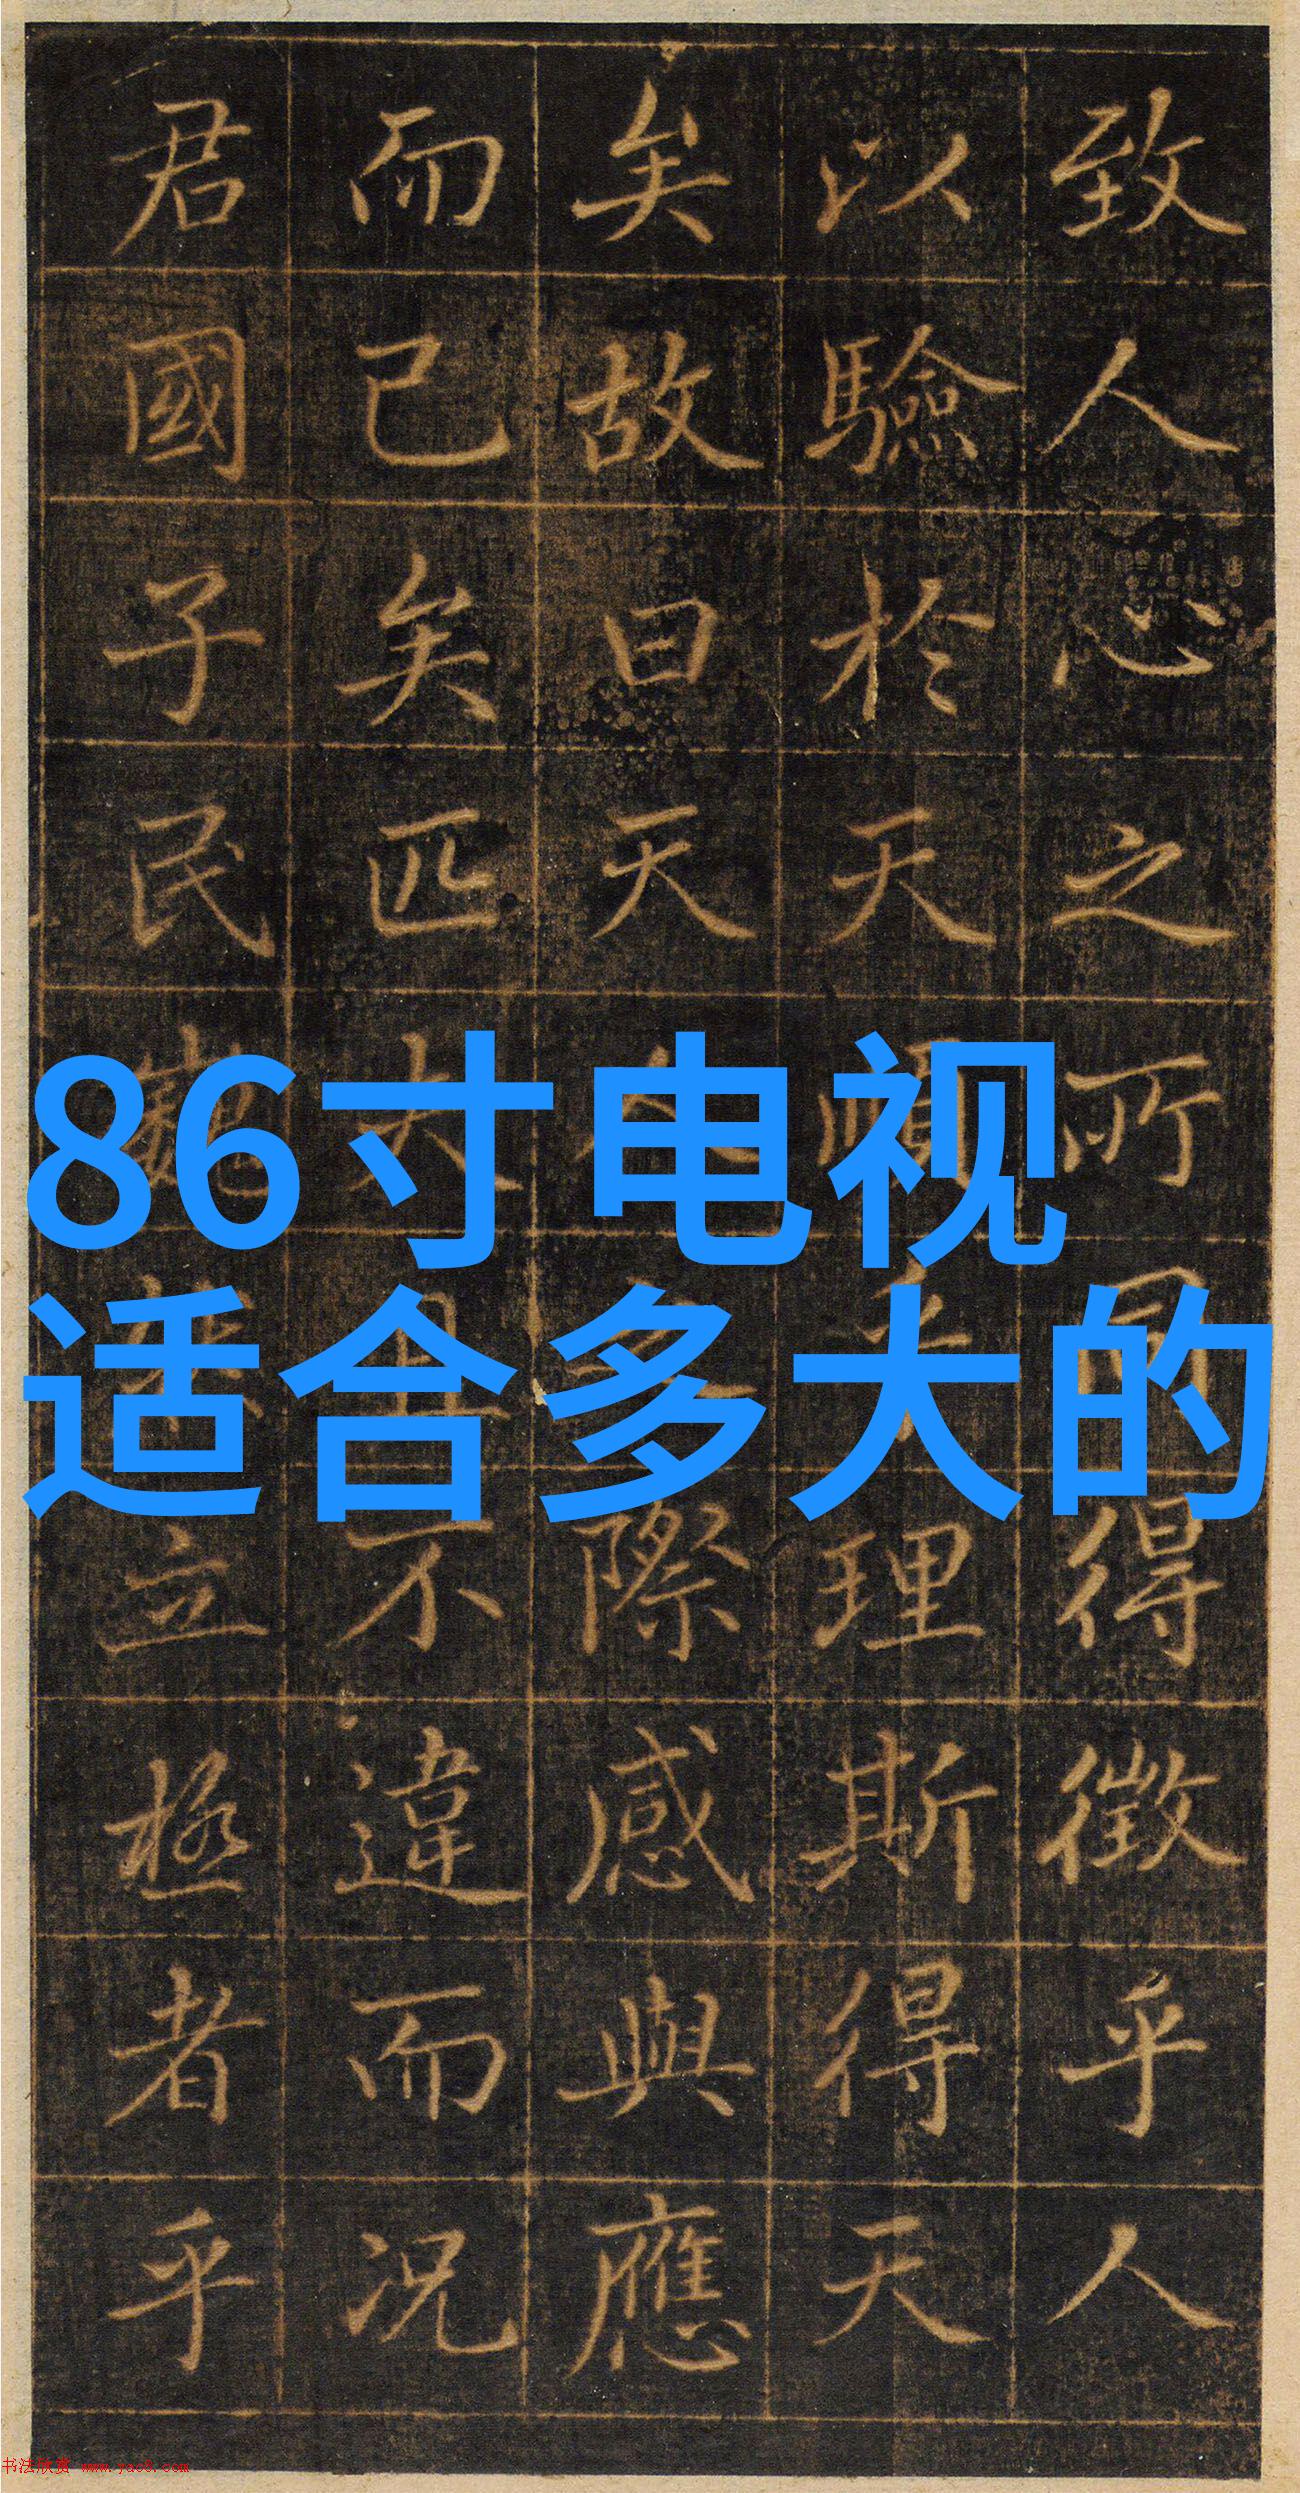 致人心之所同得徵乎人
以驗於天順乎理斯得天
矣故曰天人之際感與應
而已矣匹夫且不違而況
君國子民立極者乎
86寸电视
适合多大的
书法欣赏 www.yac8.com